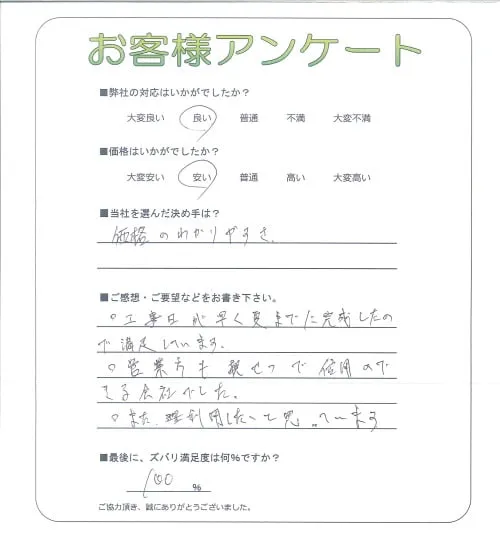 お客様アンケート
■弊社の対応はいかがでしたか？
大変良い 良い 普通 不満 大変不満
■価格はいかがでしたか？
大変安い 安い 普通 高い 大変高い
■当社を選んだ決め手は？
価格のわかりやすさ
■ご感想・ご要望などをお書き下さい。
○工事日が早く夏までに完成したの
で満足しています。
○営業方も親せつで信用ので
きる会社でした。
○また、利用したいと思っています
■最後に、ズバリ満足度は何%ですか？
100 %
ご協力頂き、誠にありがとうございました。